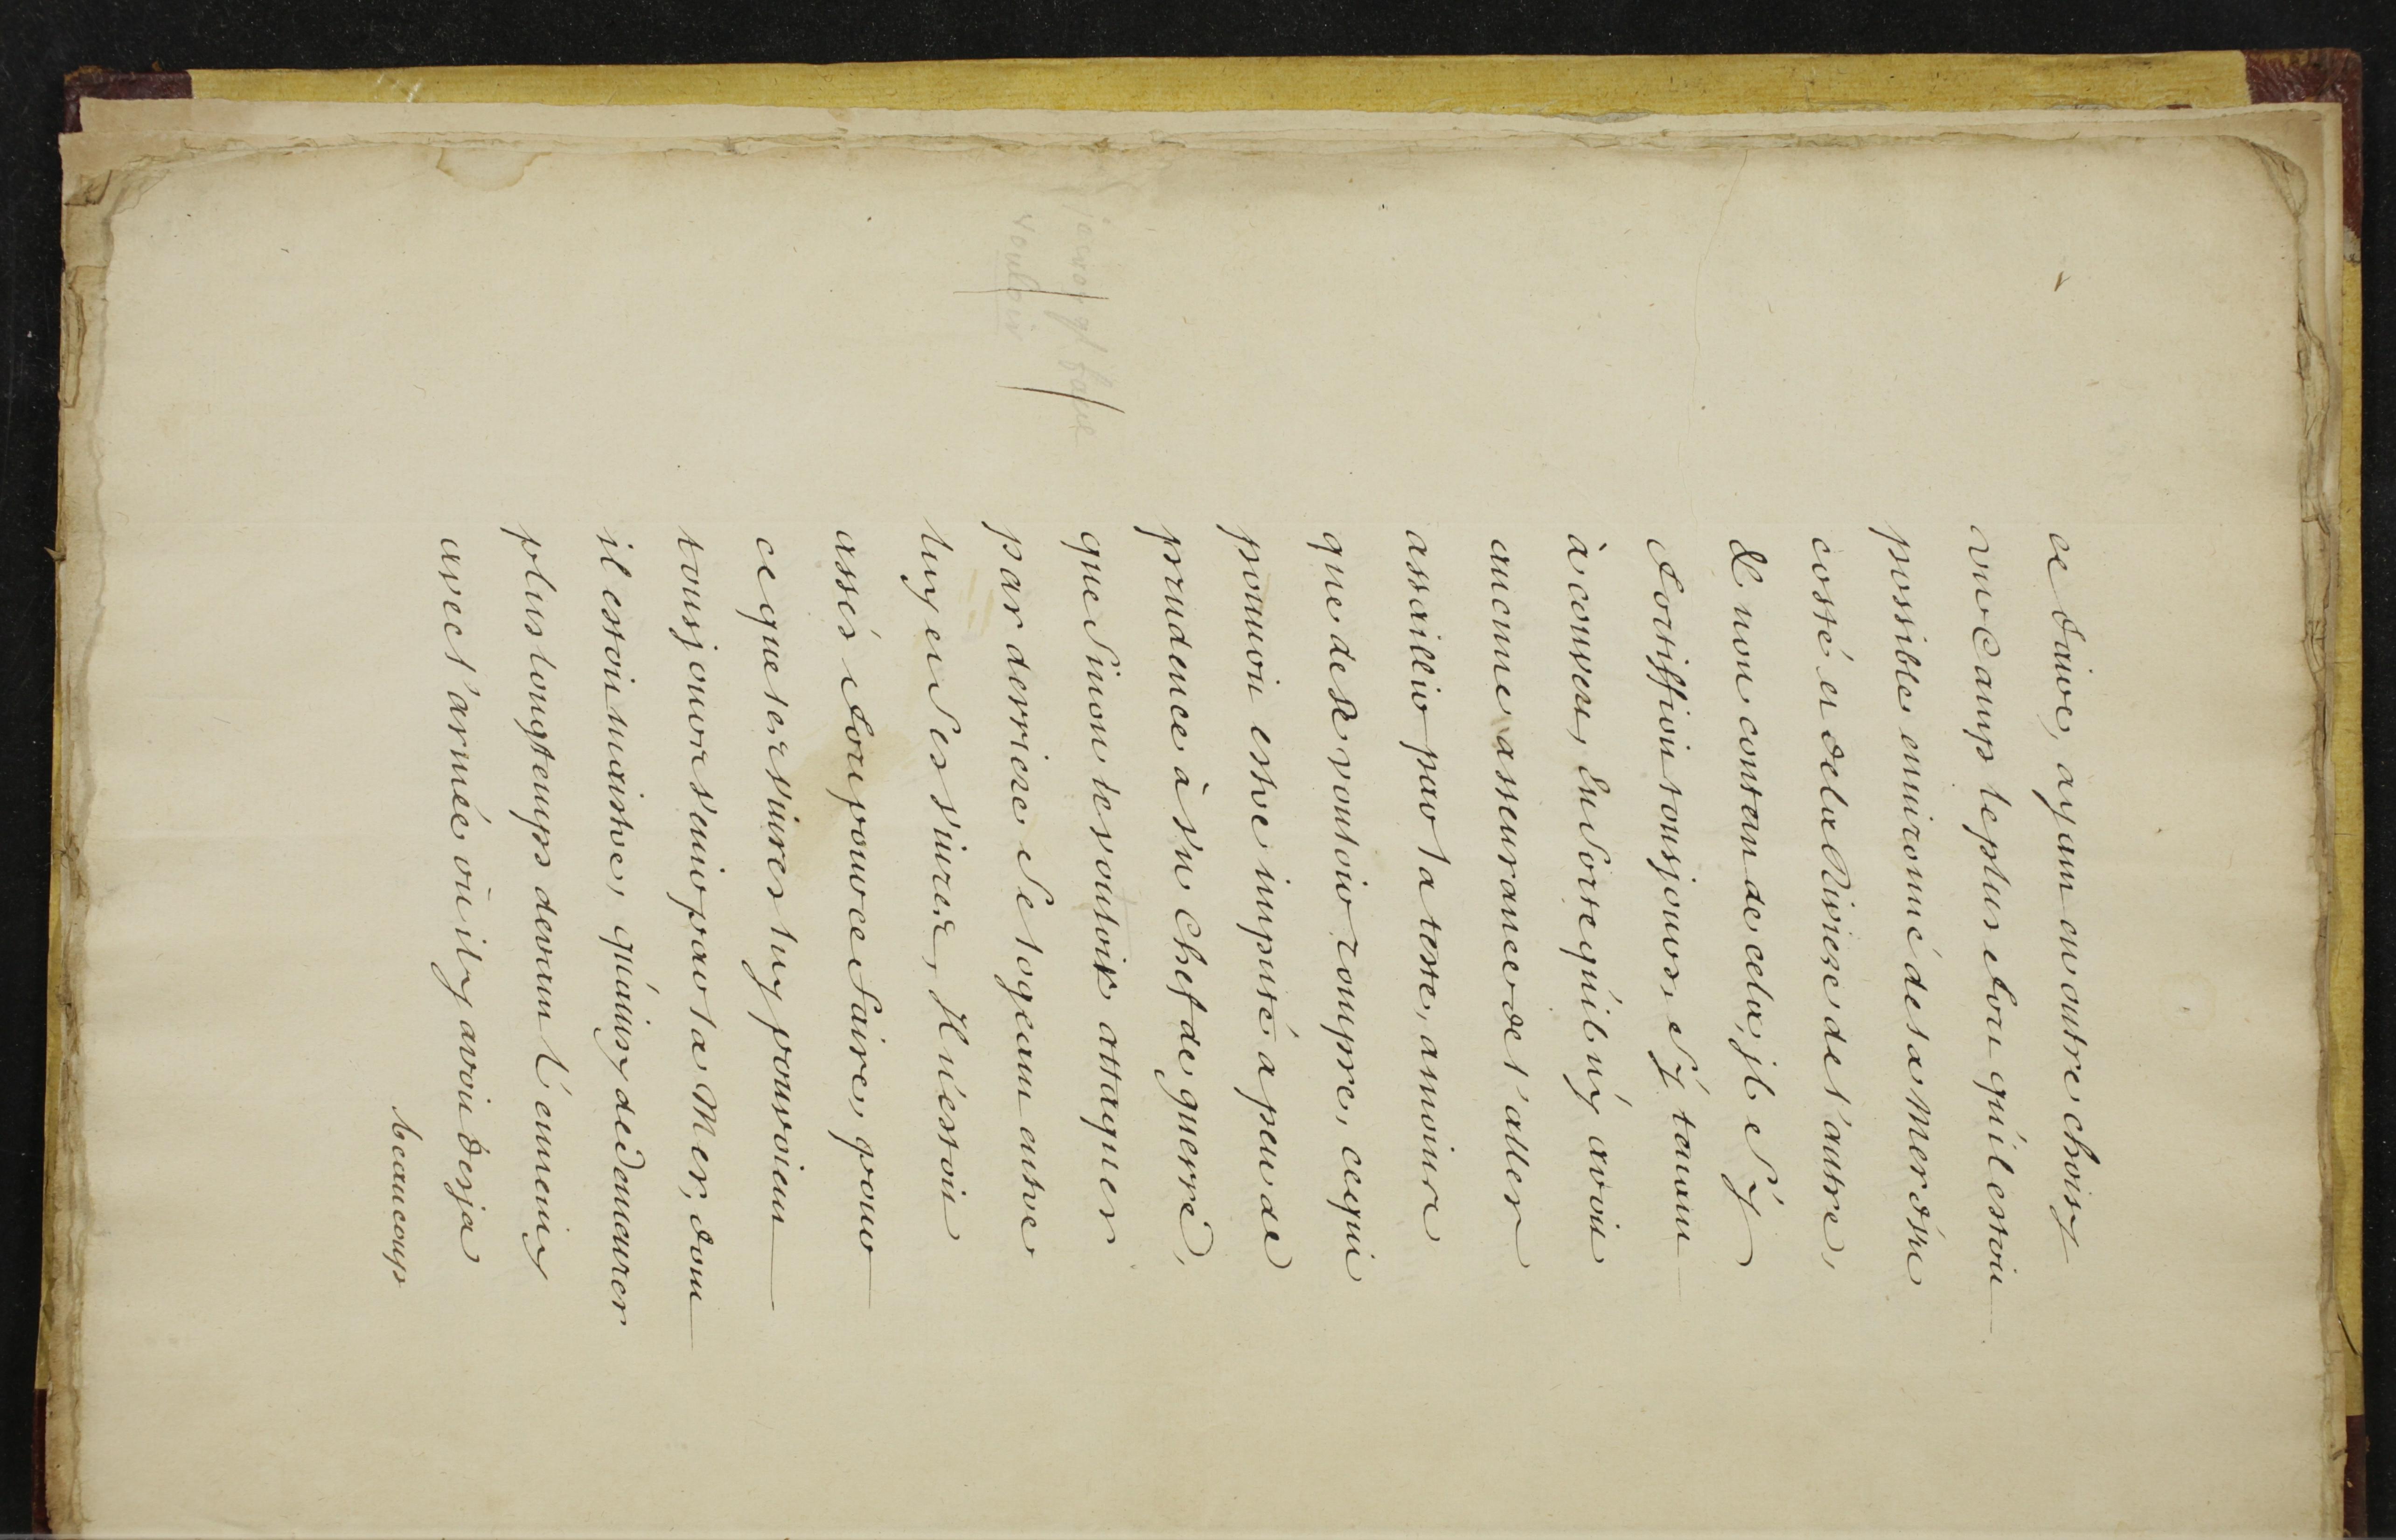 ce faire, ayant en outre choisy
un camp le plus fort qu'il estoit
possible environné de la mer d'un
costé en de la Riviere de l'autre,
Et non content de cela, jl s'y
fortiffioit tousjours, s'y tenant
à couvert, En sorte qu'il n'y avoit
aucune asseurance de l'aller
assaillir par la teste, amoins
que de se vouloir rompre, ce qui
pouuoit estre imputé a peu de
prudence à un Chef de guerre,
que Sinon le vouloir attaquer
par derriere Se logeant entre
luy en Ses viures, Il n'estoit
assés fort pour ce faire, pour
ce que les viures luy pouvoient
tousjours venir par la Mer, dont
il estoit maistre, qu'ainsy de demeurer
plus longtemps devant l'ennemy
avec l'armée où il y avoit desja
beaucoup
vouloir